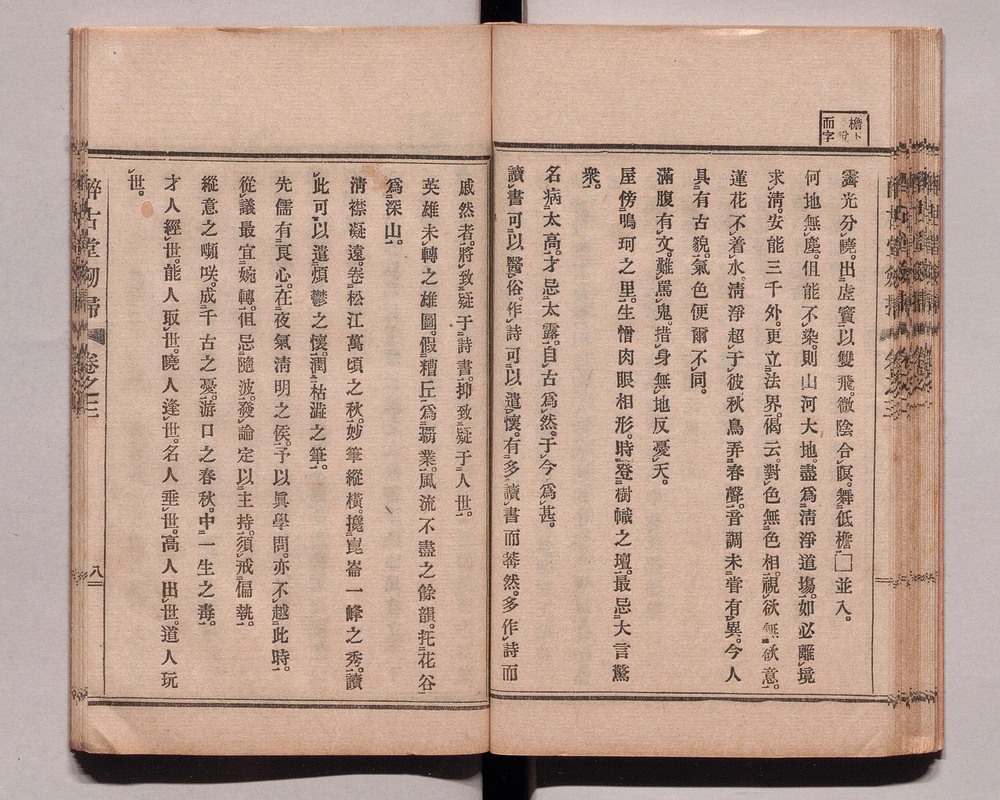 檐下
而字
霽光分曉。出虛竇以雙飛。微陰合暝。舞低檐□並入。
何地無塵。但能不染。則山河大地。盡爲淸淨道場。如必離境
求淸。安能三千外。更立法界。偈云。對色無色相。視欲無欲意。
蓮花不着水。淸淨超于彼秋鳥弄春聲。音調未甞有異。今人
具有古貌。氣色便爾不同。
滿腹有文。難罵鬼。措身無地反憂天。
屋傍鳴珂之里。生憎肉眼相形。時登樹幟之壇。最忌大言驚
衆。
名病太高。才忌太露。自古爲然。于今爲甚。
讀書可以醫俗。作詩可以遣懷。有多讀書而莾然。多作詩而
戚然者。將致疑于詩書。抑致疑于人世。
英雄未轉之雄圖。假糟丘爲覇業。風流不盡之餘韻。托花谷
爲深山。
淸襟凝遠。卷松江萬頃之秋。妙筆縱橫。攙崑崙一峰之秀。讀
此可以遣煩鬱之懷。潤枯澁之筆。
先儒有良心。在夜氣淸明之候。予以眞學問。亦不越此時。
從議最宜婉轉。徂忌隨波。發論定以主持。須戒偏執。
縱意之嚬咲。成千古之憂。游口之春秋。中一生之毒。
才人經世。能人取世。曉人逢世。名人垂世。高人出世。道人玩
世。
醉古堂劒掃 卷之三
八